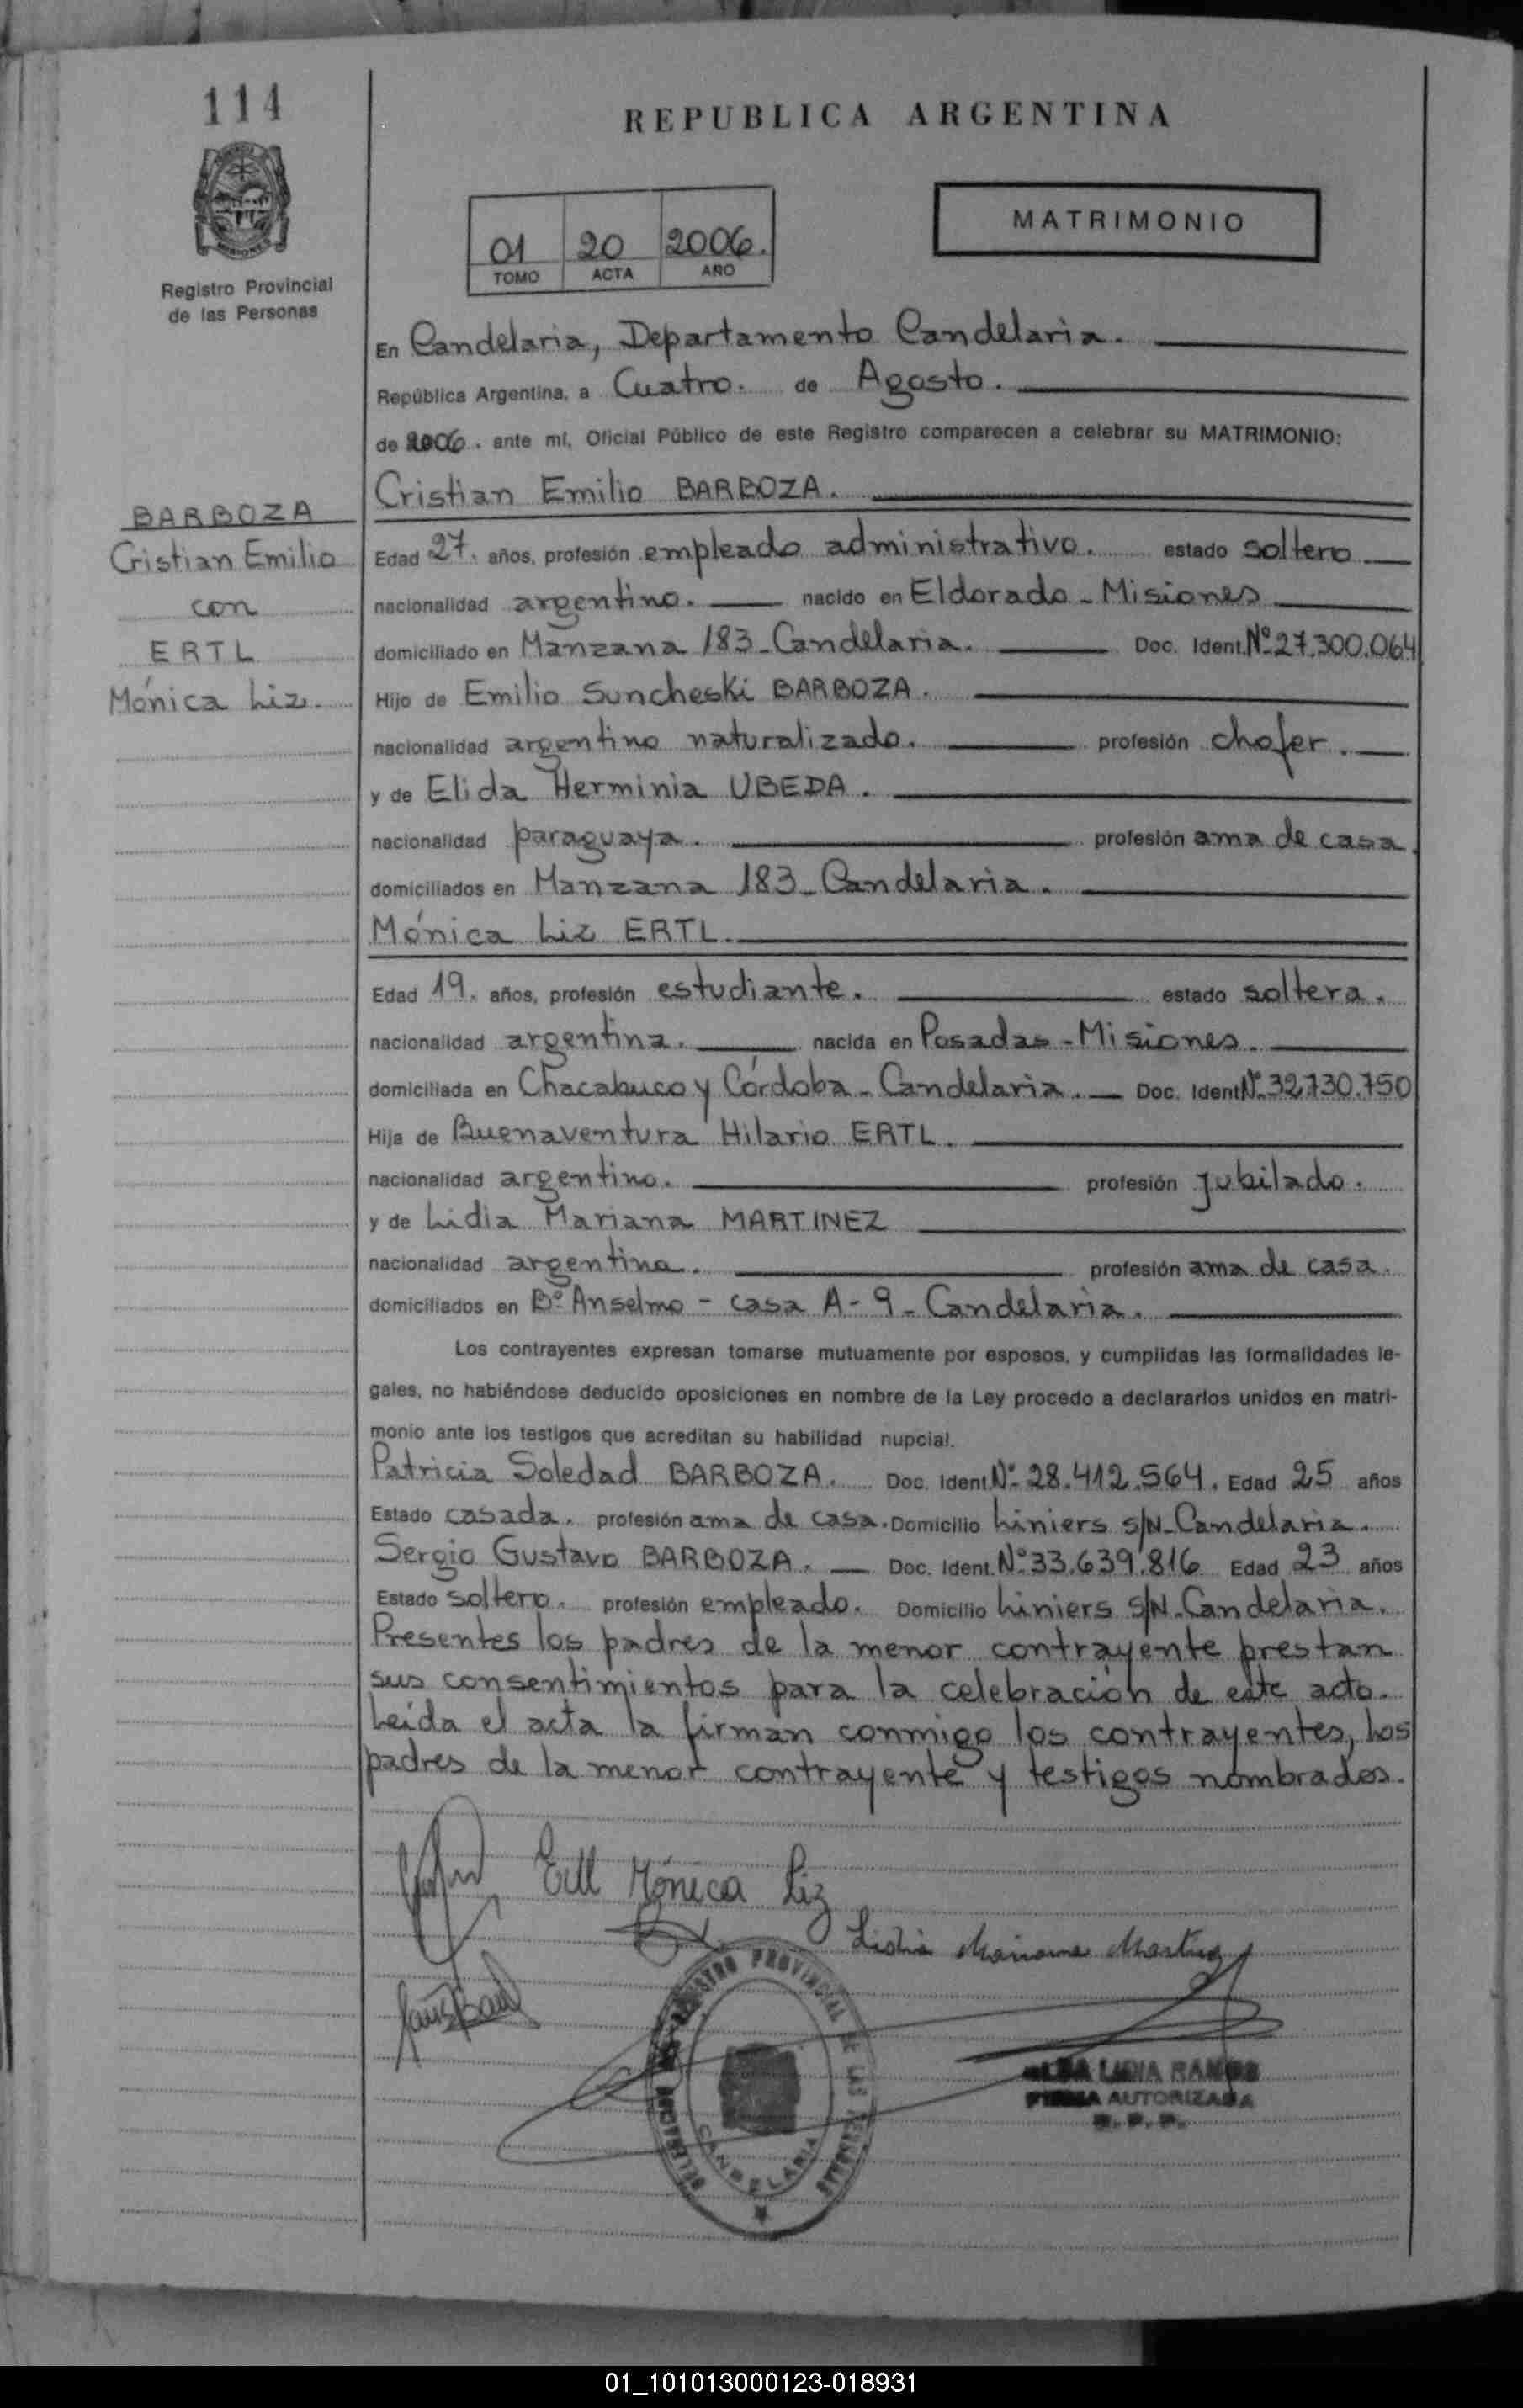 114
REPUBLICA ARGENTINA
MATRIMONIO
01 20 2006.
TOMO ACTA AÑO
Registro Provincial
de las Personas
En Candelaria, Departamento Candelaria.
República Argentina, a Cuatro. de Agosto.
de 2006. ante mí, Oficial Público de este Registro comparecen a celebrar su MATRIMONIO:
Cristian Emilio BARBOZA.
BARBOZA
Cristian Emilio
con
ERTL
Mónica Liz.
Edad 27. años, profesión empleado administrativo. estado soltero
nacionalidad argentino. nacido en Eldorado - Misiones
domiciliado en Manzana 183 - Candelaria. Doc. Ident. Nº 27.300.064
Hijo de Emilio Suncheski BARBOZA.
nacionalidad argentino naturalizado. profesión chofer.
y de Elida Herminia UBEDA.
nacionalidad paraguaya. profesión ama de casa.
domiciliados en Manzana 183 - Candelaria.
Mónica Liz ERTL.
Edad 19. años, profesión estudiante. estado soltera.
nacionalidad argentina. nacida en Posadas - Misiones.
domiciliada en Chacabuco y Córdoba - Candelaria. Doc. Ident. Nº 32.730.750
Hija de Buenaventura Hilario ERTL.
nacionalidad argentino. profesión jubilado.
y de Lidia Mariana MARTINEZ
nacionalidad argentina. profesión ama de casa.
domiciliados en Bº Anselmo - casa A-9 - Candelaria.
Los contrayentes expresan tomarse mutuamente por esposos, y cumplidas las formalidades le-
gales, no habiéndose deducido oposiciones en nombre de la Ley procedo a declararlos unidos en matri-
monio ante los testigos que acreditan su habilidad nupcial.
Patricia Soledad BARBOZA. Doc. Ident. Nº 28.412.564. Edad 25 años
Estado casada. profesión ama de casa. Domicilio Liniers S/N - Candelaria.
Sergio Gustavo BARBOZA. Doc. Ident. Nº 33.639.816 Edad 23 años
Estado soltero. profesión empleado. Domicilio Liniers S/N - Candelaria.
Presentes los padres de la menor contrayente prestan
sus consentimientos para la celebración de este acto.
Leída el acta la firman conmigo los contrayentes, los
padres de la menor contrayente y testigos nombrados.
Ertl Mónica Liz
Lidia Mariana Martinez
REGISTRO PROVINCIAL DE LAS PERSONAS
CANDELARIA
LIDIA RAMOS
FIRMA AUTORIZADA
R. P. P.
01_101013000123-018931